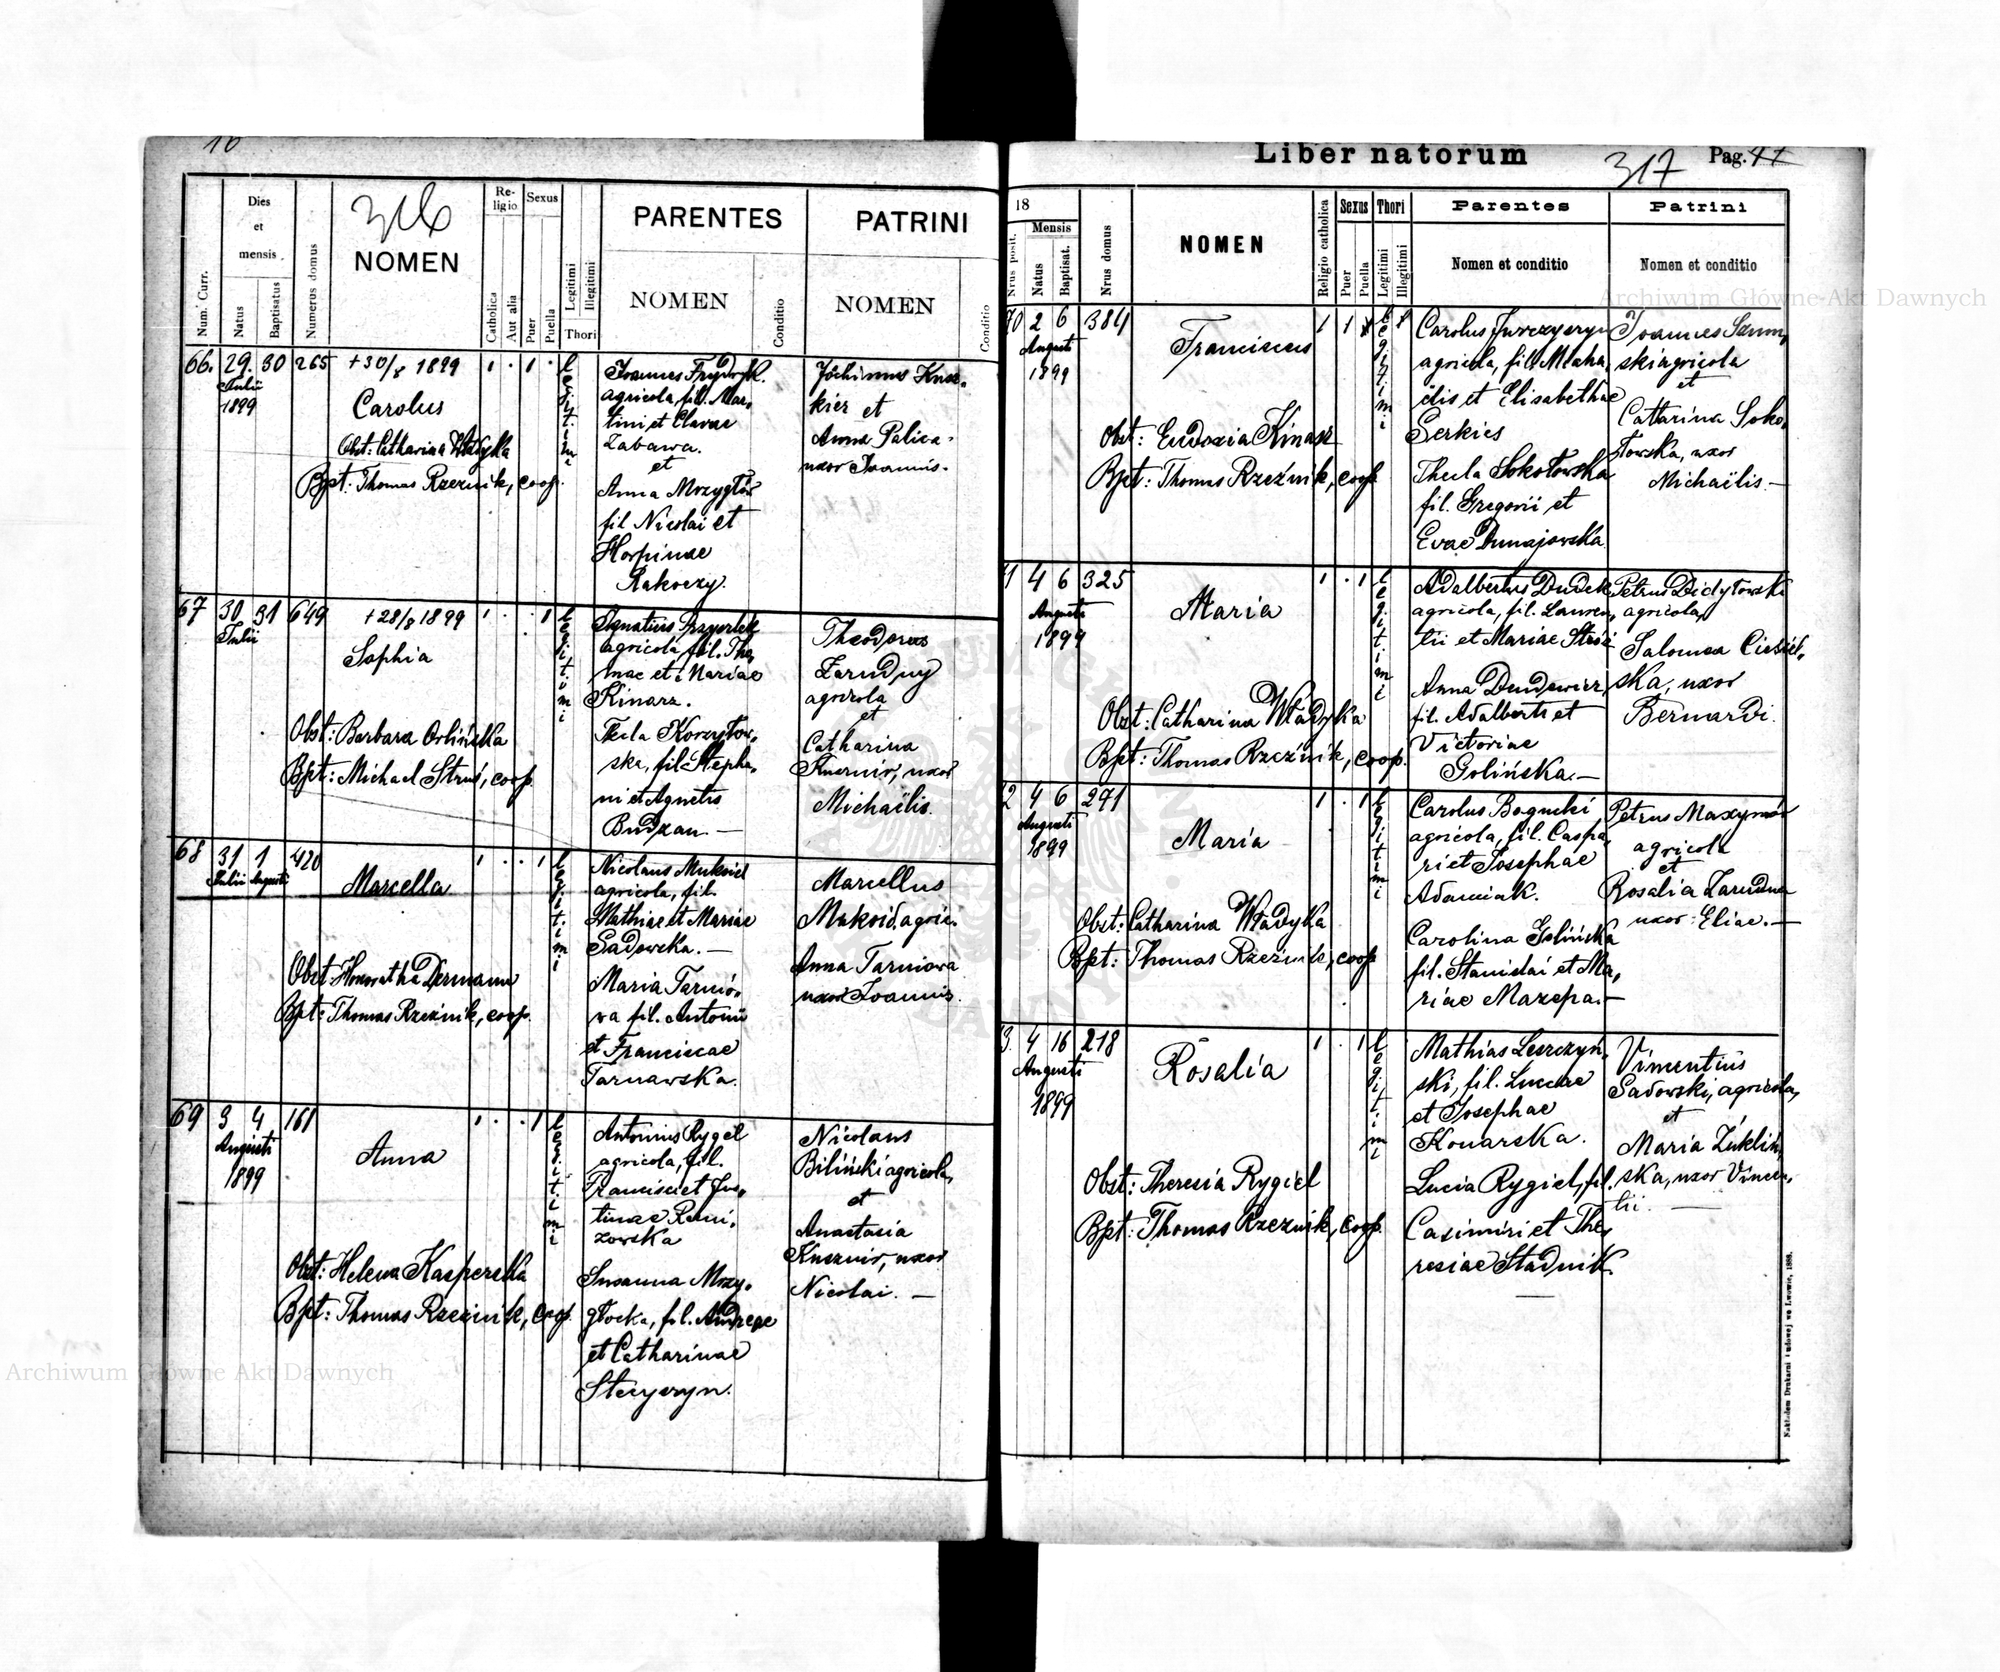 10
Dies
et
mensis
Num. Curr.
Natus
Baptisatus
Numerus domus
316
NOMEN
Re-
ligio
Catholica
Aut alia
Sexus
Puer
Puella
Legitimi
Illegitimi
Thori
PARENTES
NOMEN
Conditio
PATRINI
NOMEN
Conditio
66. 29. 30 265 + 30/8 1899
Julii
1899
Carolus
Obst: Catharina Władyka
Bpt: Thomas Rzeźnik, coop.
1 . 1 .
legitimi
Joannes Frydryk.
agricola, fil. Mar,
tini et Clarae
Zabawa.
et
Anna Mrzygłów
fil Nicolai et
Horpinae
Rakoczy.
kier et
Anna Palica.
uxor Joannis.
67 30 31 649 + 28/8 1899
Julii
Sophia
Obst: Barbara Orlińska
Bpt: Michael Struś, coop.
1 . . 1
legitimi
agricola, fil. Tho,
mae et Mariae
Kinarz.
Tecla Korzytow,
ska, fil. Stepha,
ni et Agnetis
Budzan. —
Theodorus
Zarudny
agricola
et
Catharina
Kusznir, uxor
Michaëlis.
68 31 1 420
Julii Augusti
Marcella
Obst Honoratha Dermann
Bpt: Thomas Rzeźnik, coop.
1 . . 1
legitimi
Nicolaus Muksid
agricola, fil.
Mathiae et Mariae
Sadowska. —
Maria Tarnio,
wa fil. Antonii
et Franciscae
Tarnawska.
Marcellus
Muksid agric.
Anna Tarniowa
uxor Joannis.
69 3 4 161
Augusti
1899
Anna
Obst: Helena Kasperska
Bpt: Thomas Rzeźnik, coop.
1 . . 1
legitimi
Antonius Rygel
agricola, fil.
Francisci et Jus,
tinae Romi,
zowska
Susanna Mrzy,
głocka, fil. Andreae
et Catharinae
Steryczyn.
Nicolaus
Biliński agricola,
et
Anastasia
Kusznir, uxor
Nicolai. —
Liber natorum
317
Pag. 41
18
Nrus posit.
Mensis
Natus
Baptisat.
Nrus domus
NOMEN
Religio catholica
Sexus
Puer
Puella
Thori
Legitimi
Illegitimi
Parentes
Nomen et conditio
Patrini
Nomen et conditio
70 2 6 384
Augusti
1899
Franciscus
Obst: Eudoxia Kinasz
Bpt: Thomas Rzeźnik, coop.
1 1
legitimi
Carolus Jurczyszyn
agricola, fil. Micha,
ëlis et Elisabethae
Serkies
Thecla Sokołowska
fil. Gregorii et
Evae Dunajowska
Joannes Szum,
ski agricola
et
Catharina Soko,
łowska, uxor
Michaëlis. —
1 4 6 325
Augusti
1899
Maria
Obst: Catharina Władyka
Bpt: Thomas Rzeźnik, coop.
1 . 1
legitimi
Adalbertus Dudek
agricola, fil. Lauren,
tii et Mariae
Anna Dendewicz,
fil. Adalberti et
Victoriae
Golińska. —
Petrus Didyłowski
agricola,
Salomea Cieśiel,
ska, uxor
Bernardi.
2 4 6 271
Augusti
1899
Maria
Obst: Catharina Władyka
Bpt: Thomas Rzeźnik, coop
1 . 1
legitimi
Carolus Bogucki
agricola, fil. Caspa,
ri et Josephae
Adamiak.
Carolina Golińska
fil. Stanislai et Ma,
riae Mazepa. —
Petrus Maxymów
agricola
et
Rosalia Zarudna
uxor Eliae. —
3. 4 16 218
Augusti
1899
Rosalia
Obst: Theresia Rygiel
Bpt: Thomas Rzeźnik, coop.
1 . 1
legitimi
Mathias Leszczyń,
ski, fil. Lucae
et Josephae
Konarska.
Lucia Rygiel, fil.
Casimiri et The,
resiae Stadnik.
Vincentius
Sadowski, agricola,
et
Maria Żukliń,
ska, uxor Vincen,
tii. —
Nakładem Drukarni ludowej we Lwowie, 1888.
Archiwum Główne Akt Dawnych
Archiwum Główne Akt Dawnych